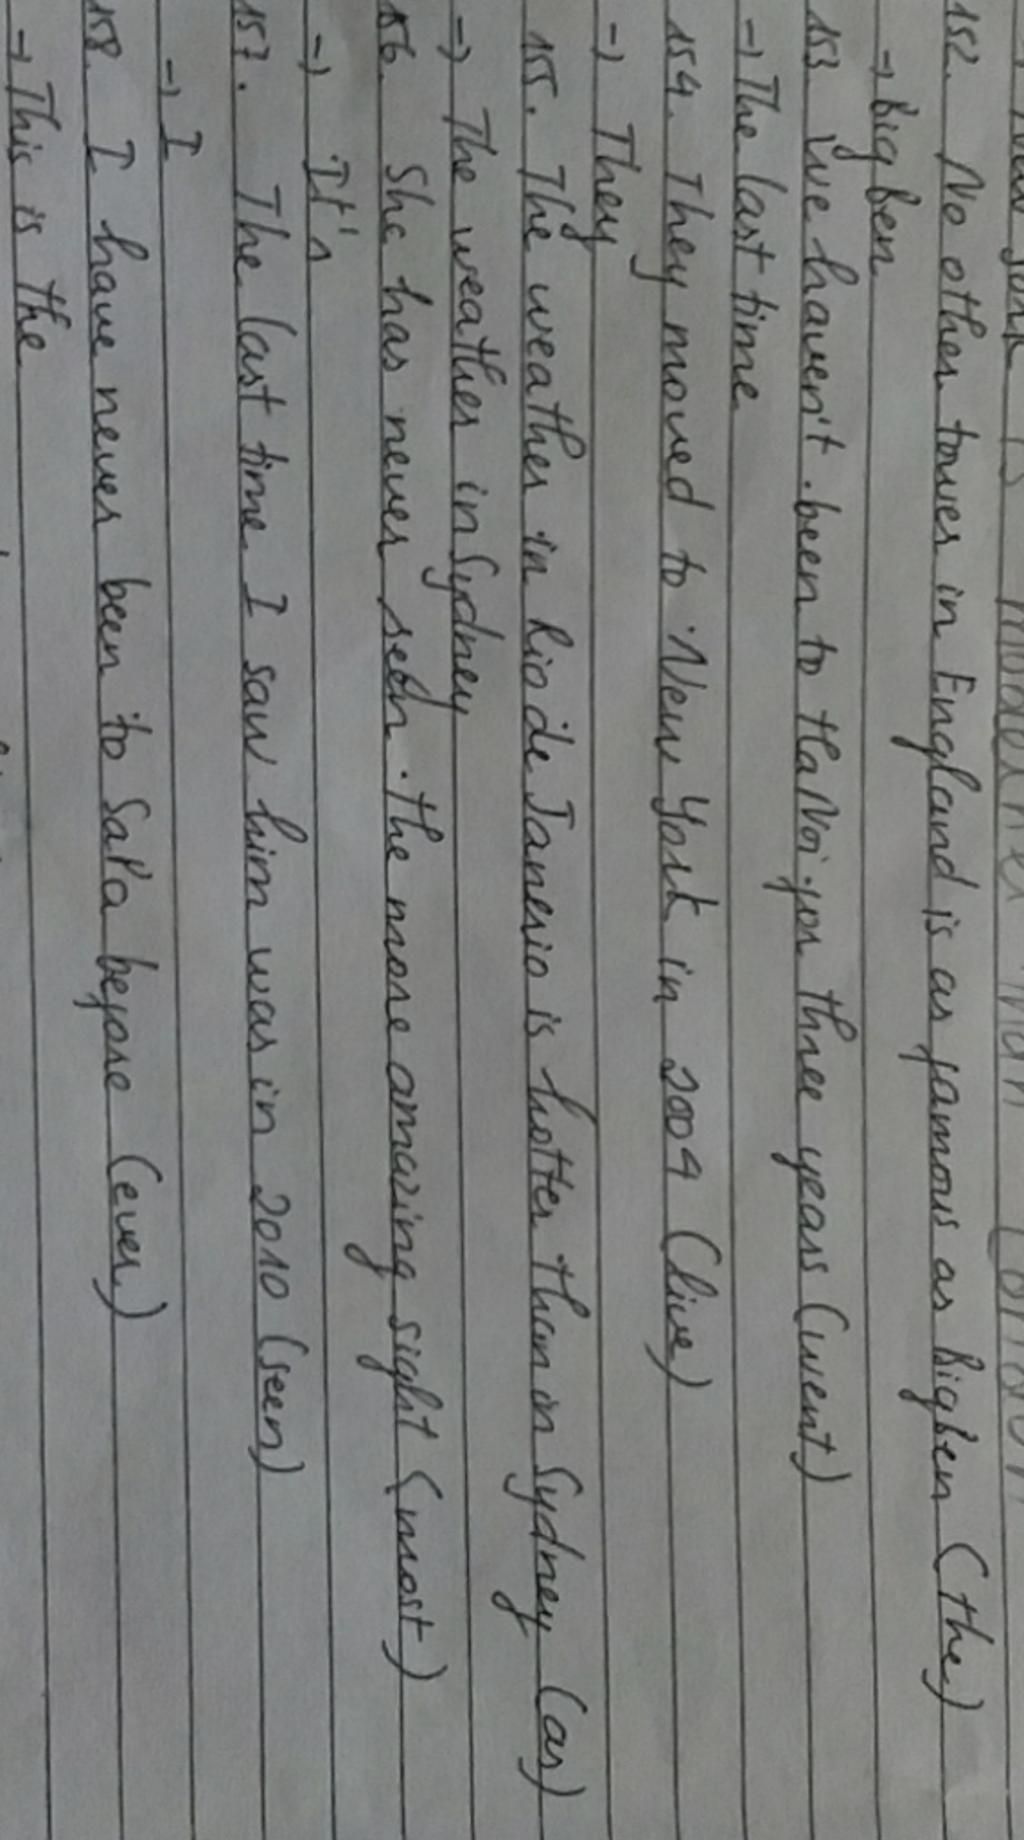 152. No other tower in England is as famous as Bigben (the)
→ Big ben
153. We haven't been to Ha Noi for three years (went)
→ The last time
154. They moved to New York in 2004 (live)
→ They
155. The weather in Rio de Janerio is hotter than in Sydney (as)
→ The weather in Sydney
156. She has never seen the more amazing sight (most)
→ It's
157. The last time I saw him was in 2010 (seen)
→ I
158. I have never been to SaPa before (ever)
→ This is the